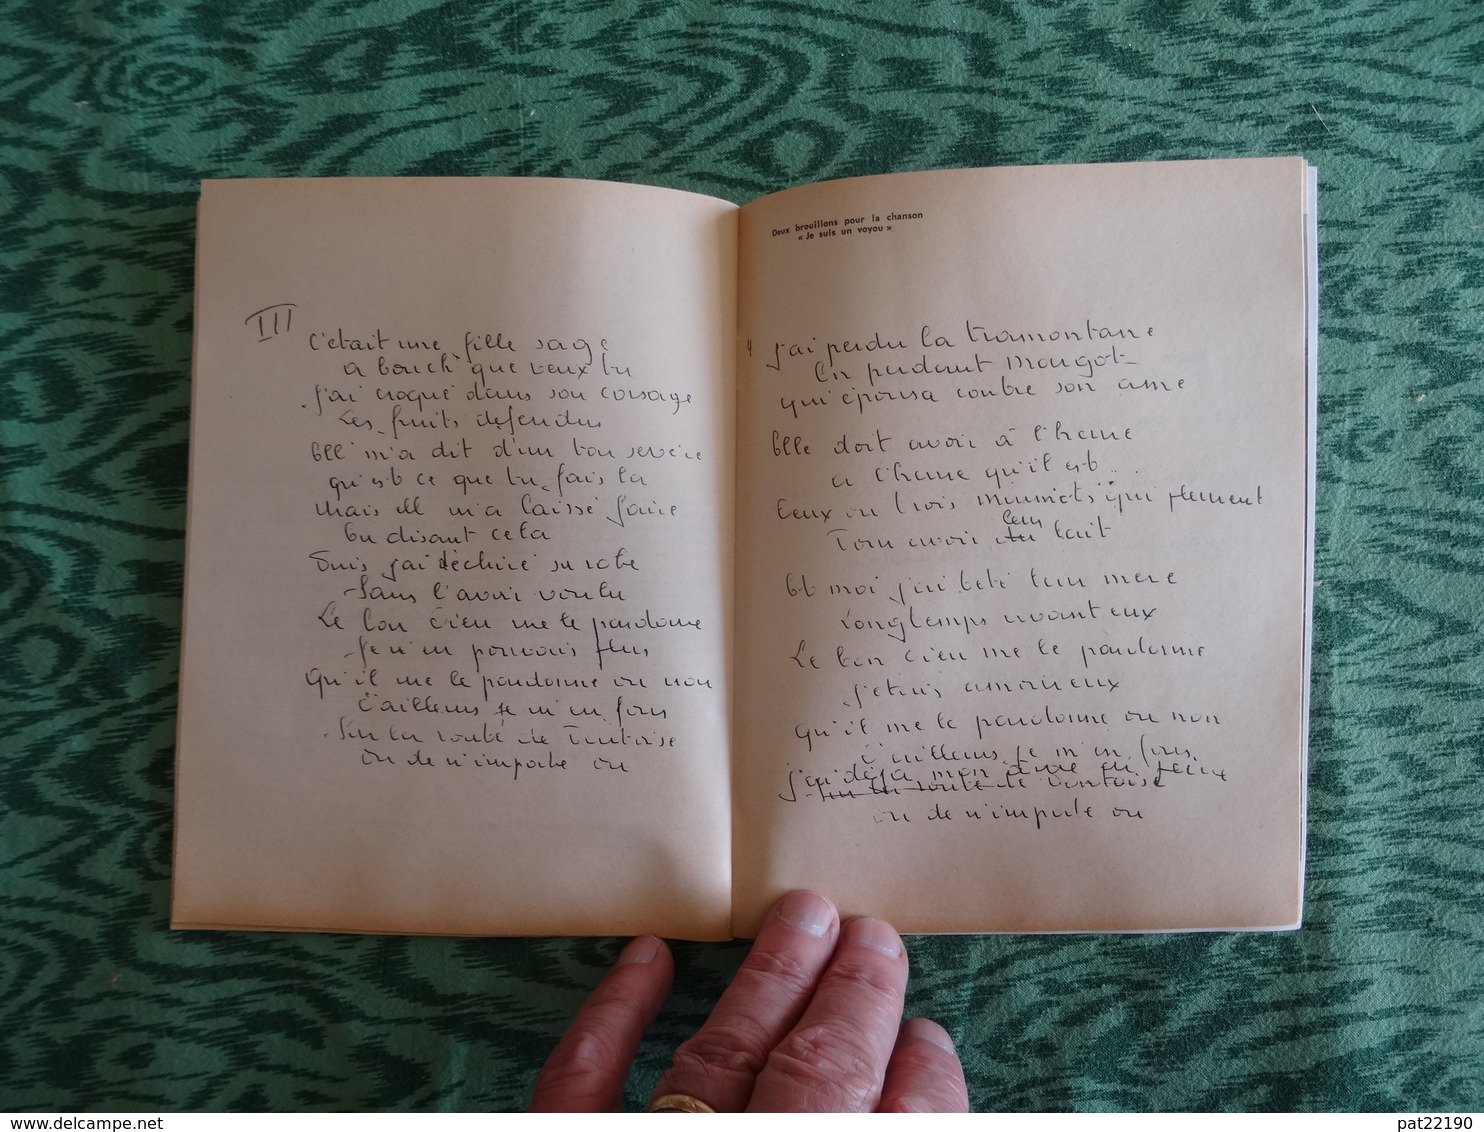 III
C'était une fille sage
a bouch' que veux tu
J'ai croqué dans son corsage
Les fruits defendus
Ell' m'a dit d'un ton severe
qu'est ce que tu fais la
Mais ell m'a laissé faire
En disant cela
Puis j'ai déchiré sa robe
Sans l'avoir voulu
Le bon Dieu me le pardonne
Je n'en pouvais plus
Qu'il me le pardonne ou non
D'ailleurs je m'en fous
Sur la route de
ou de n'importe ou
Deux brouillons pour la chanson
« Je suis un voyou »
4
J'ai perdu la tramontane
En perdant Margot
qui épousa contre son ame
Elle doit avoir à l'heure
a l'heure qu'il est...
Deux ou trois mounots qui pleurent
Pour avoir leur lait
Et moi j'ai teté leur mere
Longtemps avant eux
Le bon Dieu me le pardonne
J'etais amoureux
Qu'il me le pardonne ou non
D'ailleurs je m'en fous
J'ai déja mon ame en peine
Sur la route de
ou de n'importe ou
www.delcampe.net
pat22190